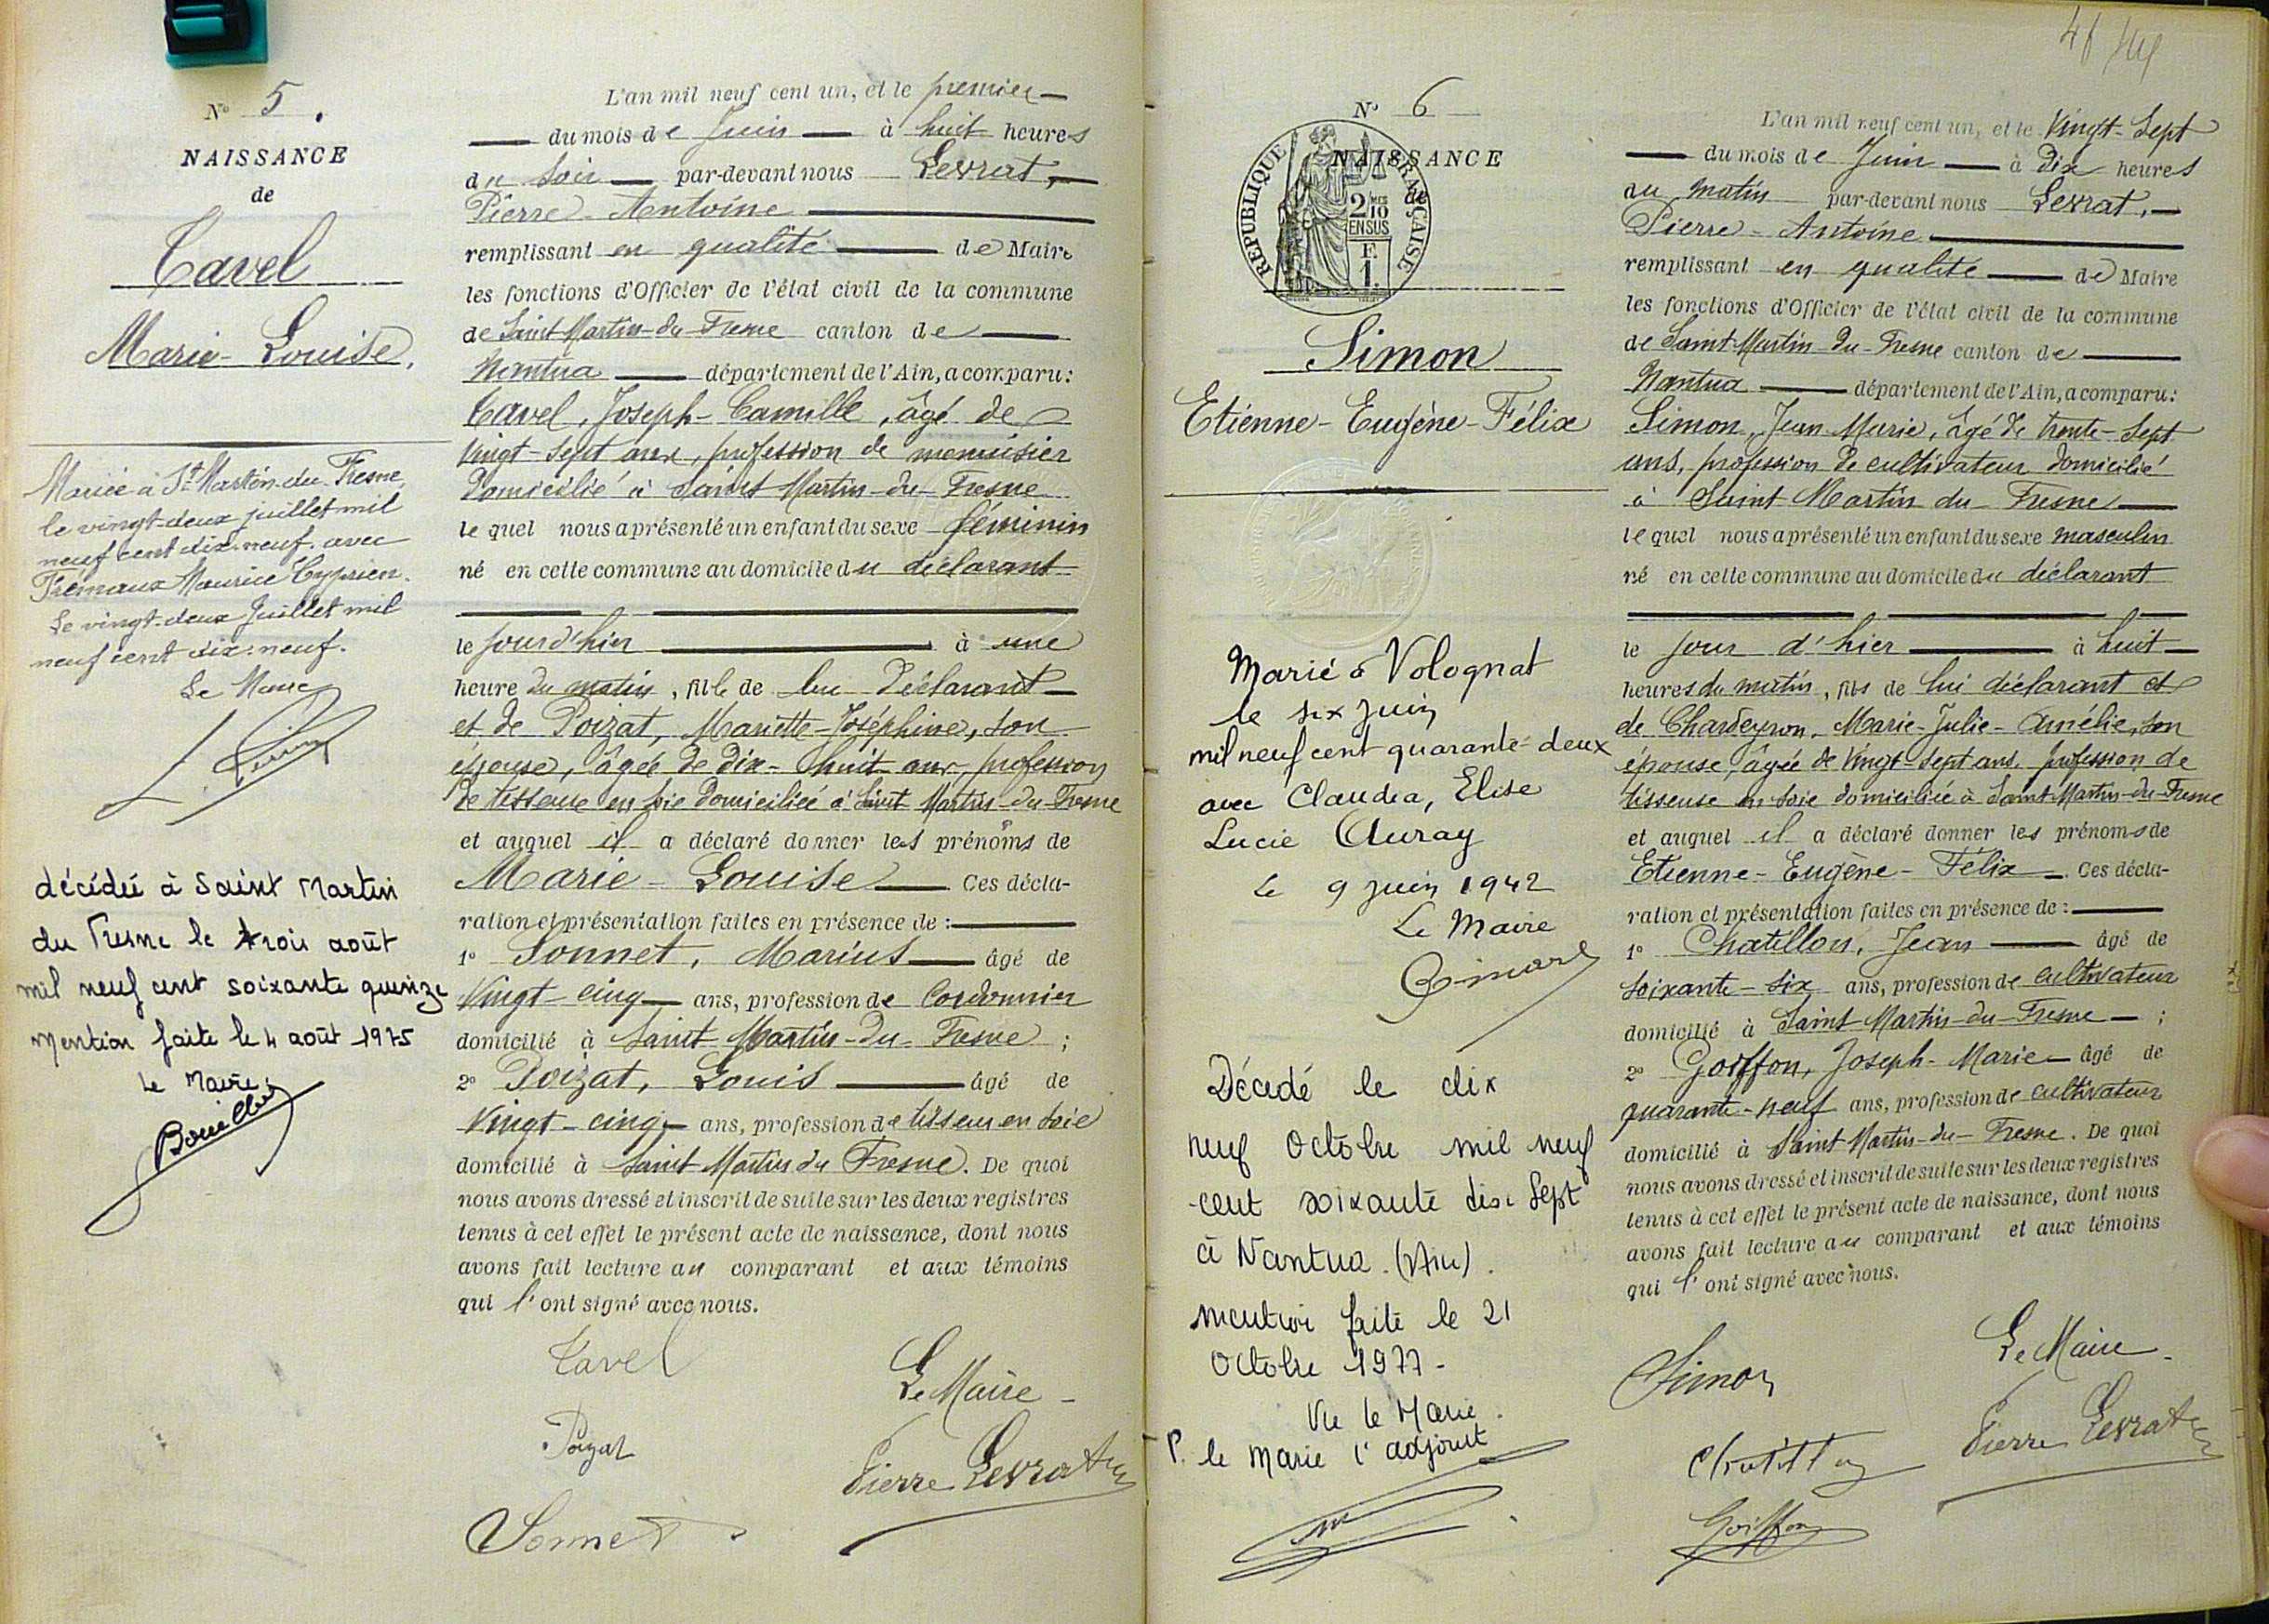 N° 5.
NAISSANCE
de
Tavel
Marie-Louise.
Mariée à St Martin du Fresne,
le vingt-deux juillet mil
neuf cent dix-neuf. avec
Trémaux Maurice Cyprien.
Le vingt-deux Juillet mil
neuf cent dix-neuf.
Le Maire
décédée à Saint Martin
du Fresne le trois août
mil neuf cent soixante quinze
Mention faite le 4 août 1975
Le Maire,
L'an mil neuf cent un, et le premier
du mois de Juin à huit heures
du soir par-devant nous Levrat,
Pierre-Antoine
remplissant en qualité de Maire
les fonctions d'Officier de l'état civil de la commune
de Saint Martin-du-Fresne canton de
Nantua département de l'Ain, a comparu:
Tavel, Joseph-Camille, âgé de
vingt-sept ans, profession de menuisier
domicilié à Saint Martin-du-Fresne
le quel nous a présenté un enfant du sexe féminin
né en cette commune au domicile du déclarant
le jour d'hier à une
heure du matin, fille de lui déclarant
et de Poizat, Mariette-Joséphine, son
épouse, âgée de dix-huit ans, profession
de tisseuse en soie domiciliée à Saint Martin-du-Fresne
et auquel il a déclaré donner les prénoms de
Marie-Louise Ces décla-
ration et présentation faites en présence de:
1° Sonnet, Marius âgé de
Vingt-cinq ans, profession de Cordonnier
domicilié à Saint Martin-du-Fresne;
2° Poizat, Louis âgé de
Vingt-cinq ans, profession de tisseur en soie
domicilié à Saint Martin du Fresne. De quoi
nous avons dressé et inscrit de suite sur les deux registres
tenus à cet effet le présent acte de naissance, dont nous
avons fait lecture au comparant et aux témoins
qui l'ont signé avec nous.
Tavel
Le Maire
Poizat
Pierre Levrat
Sonnet
N° 6
NAISSANCE
de
RÉPUBLIQUE FRANÇAISE
2/10 EN SUS
F. 1.
Simon
Etienne-Eugène-Félix
Marié à Volognat
le six juin
mil neuf cent quarante-deux
avec Claudia, Elise
Lucie Auray
Le 9 juin 1942
Le Maire
Décédé le dix
neuf Octobre mil neuf
-cent soixante dix sept
à Nantua. (Ain).
mention faite le 21
Octobre 1977-
Vu le Maire.
P. le Maire l'adjoint
L'an mil neuf cent un, et le Vingt-Sept
du mois de Juin à Dix heures
du matin par-devant nous Levrat,
Pierre-Antoine
remplissant en qualité de Maire
les fonctions d'Officier de l'état civil de la commune
de Saint-Martin-du-Fresne canton de
Nantua département de l'Ain, a comparu:
Simon, Jean-Marie, âgé de trente-sept
ans, profession de cultivateur domicilié
à Saint-Martin du Fresne
le quel nous a présenté un enfant du sexe masculin
né en cette commune au domicile du déclarant
le jour d'hier à huit
heures du matin, fils de lui déclarant et
de Chardeyron, Marie-Julie-Amélie, son
épouse, âgée de Vingt-sept ans, profession de
tisseuse en soie domiciliée à Saint Martin-du-Fresne
et auquel il a déclaré donner les prénoms de
Etienne-Eugène-Félix. Ces décla-
ration et présentation faites en présence de:
1° Chatillon, Jean âgé de
soixante-six ans, profession de cultivateur
domicilié à Saint Martin-du-Fresne;
2° Goiffon, Joseph-Marie âgé de
quarante-neuf ans, profession de cultivateur
domicilié à Saint-Martin-du-Fresne. De quoi
nous avons dressé et inscrit de suite sur les deux registres
tenus à cet effet le présent acte de naissance, dont nous
avons fait lecture au comparant et aux témoins
qui l'ont signé avec nous.
Le Maire
Simon
Pierre Levrat
Chatillon
Goiffon